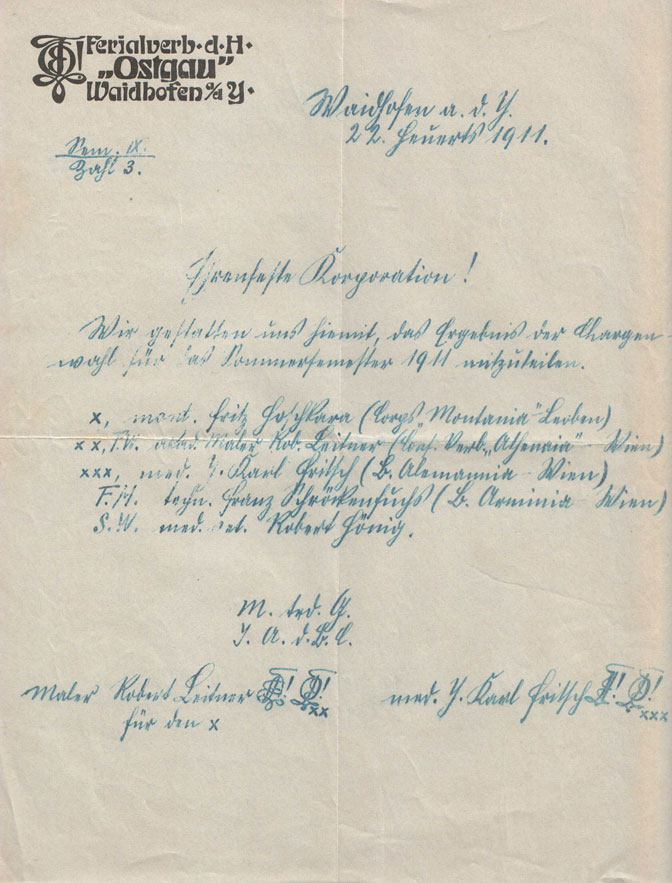 Ferialverb·d·H·
„Ostgau"
Waidhofen a/d Y·
Waidhofen a. d. Y.
22. Heuerts 1911.
Sem. IX.
Zahl 3.
Ehrenfeste Korporation!
Wir gestatten uns hiemit, das Ergebnis der Chargen-
wahl für das Sommersemester 1911 mitzuteilen.
x, mont. Fritz Hoschkara (Corps „Montania" Leoben)
xx, F.W. akad. Maler Rob. Leitner (Conf. Verb. „Athenaia" - Wien)
xxx, med. J. Karl Fritsch (B. Alemannia - Wien)
techn. Franz Schröckenfuchs (B. Arminia - Wien)
S.W. med. Robert Hönig.
M. td. G.
I. A. d. B. C.
Maler Robert Leitner xx
für den x
med. J. Karl Fritsch xxx